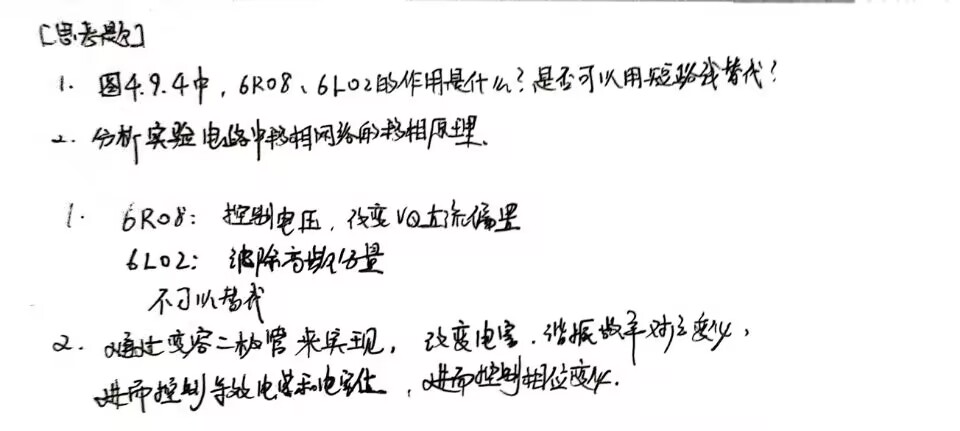 [思考题]
1. 图4.9.4中，6R08、6L02的作用是什么？是否可以用短路线替代？
2. 分析实验电路中移相网络的移相原理。
1. 6R08：控制电压，改变VQ直流偏置
6L02：滤除高频分量
不可以替代
2. 通过变容二极管来实现，改变电容，谐振频率对应变化，
进而控制等效电感和电容值，进而控制相位变化.